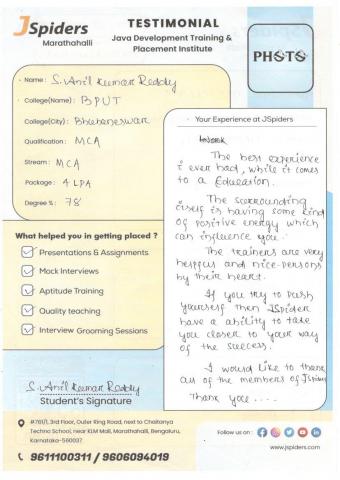 JSpiders
Marathahalli
TESTIMONIAL
Java Development Training &
Placement Institute
PHOTO
Name : S. Anil Kumar Reddy
College(Name) : BPUT
College(City) : Bhubaneswar
Qualification : MCA
Stream : MCA
Package : 4 LPA
Degree % : 78
What helped you in getting placed ?
Presentations & Assignments
Mock Interviews
Aptitude Training
Quality teaching
Interview Grooming Sessions
S. Anil Kumar Reddy
Student's Signature
Your Experience at JSpiders
The best experience
i ever had, while it comes
to a Education.
The surrounding
itself is having some kind
of positive energy which
can influence you.
The trainers are very
helpful and nice-persons
by their heart.
If you try to push
yourself then JSpider
have a ability to take
you closer to your way
of the success.
I would like to thank
all of the members of JSpiders
Thank you ....
#761/1, 3rd Floor, Outer Ring Road, next to Chaitanya
Techno School, near KLM Mall, Marathahalli, Bengaluru,
Karnataka-560037
9611100311 / 9606094019
Follow us on :
www.jspiders.com